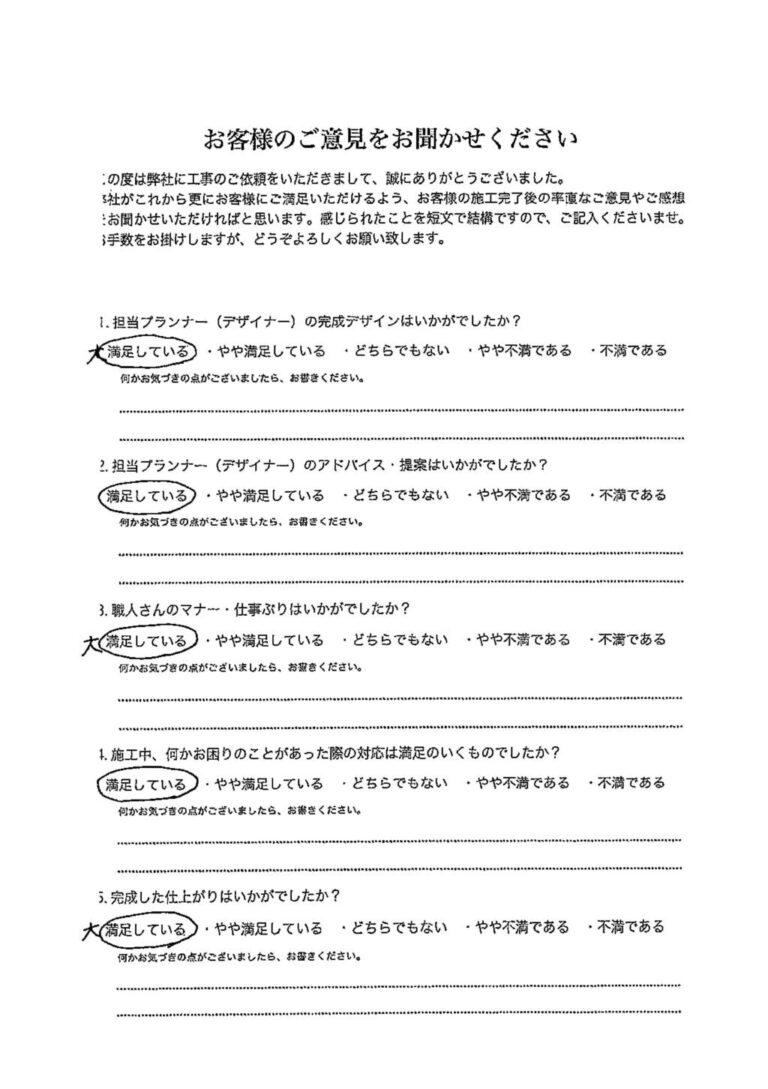 お客様のご意見をお聞かせください
この度は弊社に工事のご依頼をいただきまして、誠にありがとうございました。
弊社がこれから更にお客様にご満足いただけるよう、お客様の施工完了後の率直なご意見やご感想
をお聞かせいただければと思います。感じられたことを短文で結構ですので、ご記入くださいませ。
お手数をお掛けしますが、どうぞよろしくお願い致します。
1. 担当プランナー（デザイナー）の完成デザインはいかがでしたか？
大 満足している ・やや満足している ・どちらでもない ・やや不満である ・不満である
何かお気づきの点がございましたら、お書きください。
2. 担当プランナー（デザイナー）のアドバイス・提案はいかがでしたか？
満足している ・やや満足している ・どちらでもない ・やや不満である ・不満である
何かお気づきの点がございましたら、お書きください。
3. 職人さんのマナー・仕事ぶりはいかがでしたか？
大 満足している ・やや満足している ・どちらでもない ・やや不満である ・不満である
何かお気づきの点がございましたら、お書きください。
4. 施工中、何かお困りのことがあった際の対応は満足のいくものでしたか？
満足している ・やや満足している ・どちらでもない ・やや不満である ・不満である
何かお気づきの点がございましたら、お書きください。
5. 完成した仕上がりはいかがでしたか？
大 満足している ・やや満足している ・どちらでもない ・やや不満である ・不満である
何かお気づきの点がございましたら、お書きください。